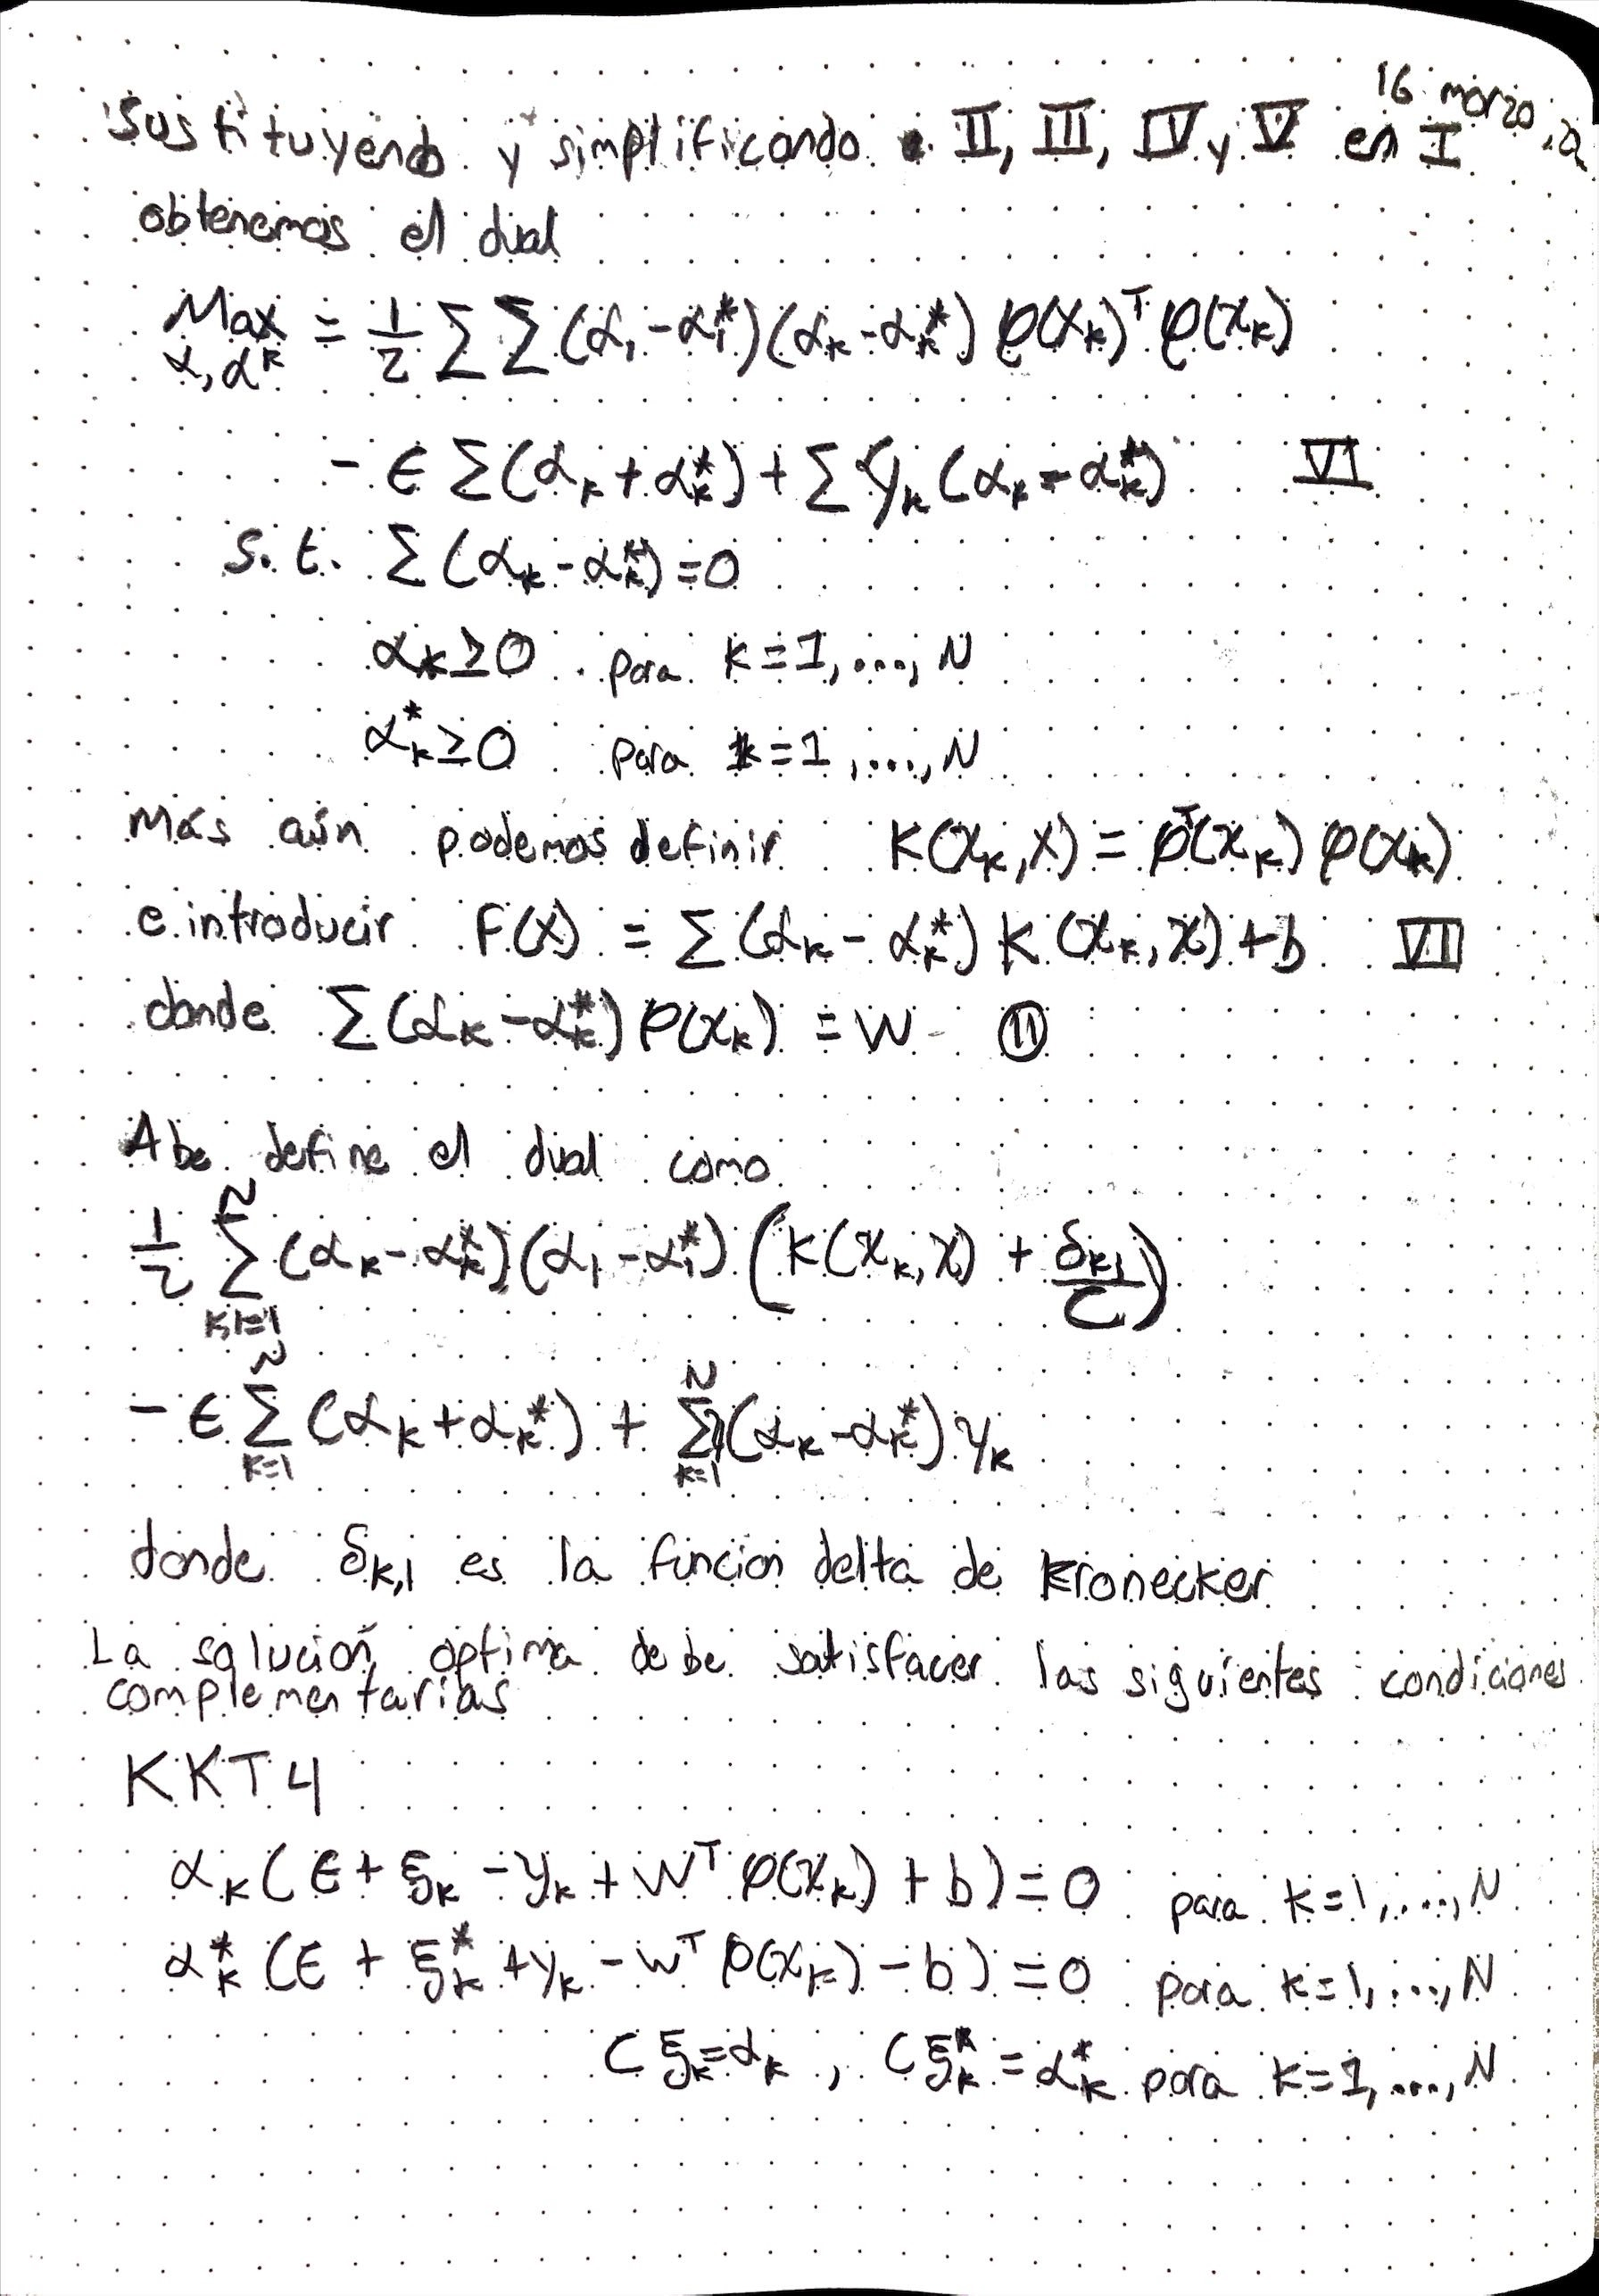 16 marzo, 2
Sustituyendo y simplificando II, III, IV y V en I
obtenemos el dual
Max = 1/2 Σ Σ (α₁ - α₁*)(αₖ - αₖ*) φ(xₖ)ᵀ φ(xₖ)
α, αᵏ
- ϵ Σ(αₖ + αₖ*) + Σ yₖ (αₖ - αₖ*) VI
s.t. Σ (αₖ - αₖ*) = 0
αₖ ≥ 0 para k = 1, ..., N
αₖ* ≥ 0 para k = 1, ..., N
Más aún podemos definir K(xₖ, x) = φᵀ(xₖ) φ(xₖ)
e introducir F(x) = Σ (αₖ - αₖ*) K (xₖ, x) + b VII
donde Σ (αₖ - αₖ*) φ(xₖ) = w ⑪
Abe define el dual como
1/2 Σ_{k,l=1}^{N} (αₖ - αₖ*)(αₗ - αₗ*) (K(xₖ, x) + δₖₗ/C)
- ϵ Σ_{k=1}^{N} (αₖ + αₖ*) + Σ_{k=1}^{N} (αₖ - αₖ*) yₖ
donde δₖ,ₗ es la funcion delta de Kronecker
La solución optima debe satisfacer las siguientes condiciones
complementarias
KKT4
αₖ (ϵ + ξₖ - yₖ + wᵀ φ(xₖ) + b) = 0 para k = 1, ..., N
αₖ* (ϵ + ξₖ* + yₖ - wᵀ φ(xₖ) - b) = 0 para k = 1, ..., N
C ξₖ = αₖ , C ξₖ* = αₖ* para k = 1, ..., N